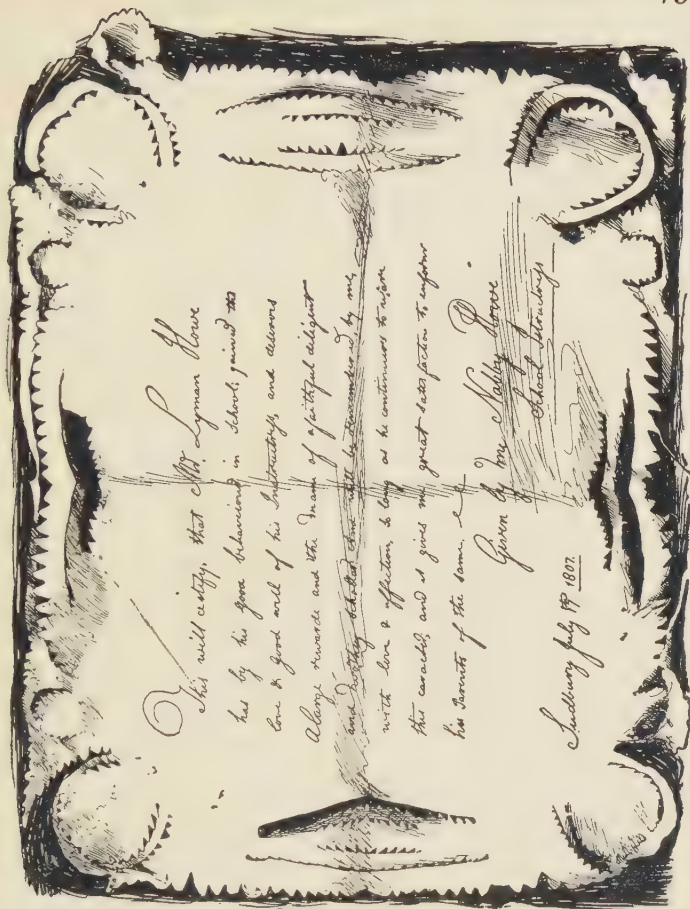 This will certify, that Mr. Lyman Howe
has by his good behaviour in School, gained the
love & good will of his Instructress, and deserves
a large rewarde and the name of a faithful diligent
and worthy schollar and will be remembered by me,
with love & affection, so long as he continues to
this caracter, and it gives me great satisfaction to inform
his Parents of the same,
Given by me Nabby Howe
School Instructress
Sudbury July 19th 1807.